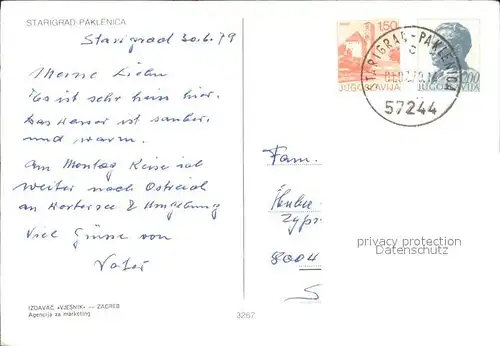 STARIGRAD-PAKLENICA
Starigrad 30.6.79
Meine Lieben
Es ist sehr hein hier.
Das Wasser ist sauber
und warm.
Am Montag Reise ich
weiter nach Ostreich
an Wortersee & Umgebung
Viel Grüsse von
Vater
IZDAVAČ »VJESNIK« — ZAGREB
Agencija za marketing
3267
1,50
JUGOSLAVIJA
2,00
JUGOSLAVIJA
STARIGRAD-PAKLENICA
57244
Fam.
8004
privacy protection
Datenschutz